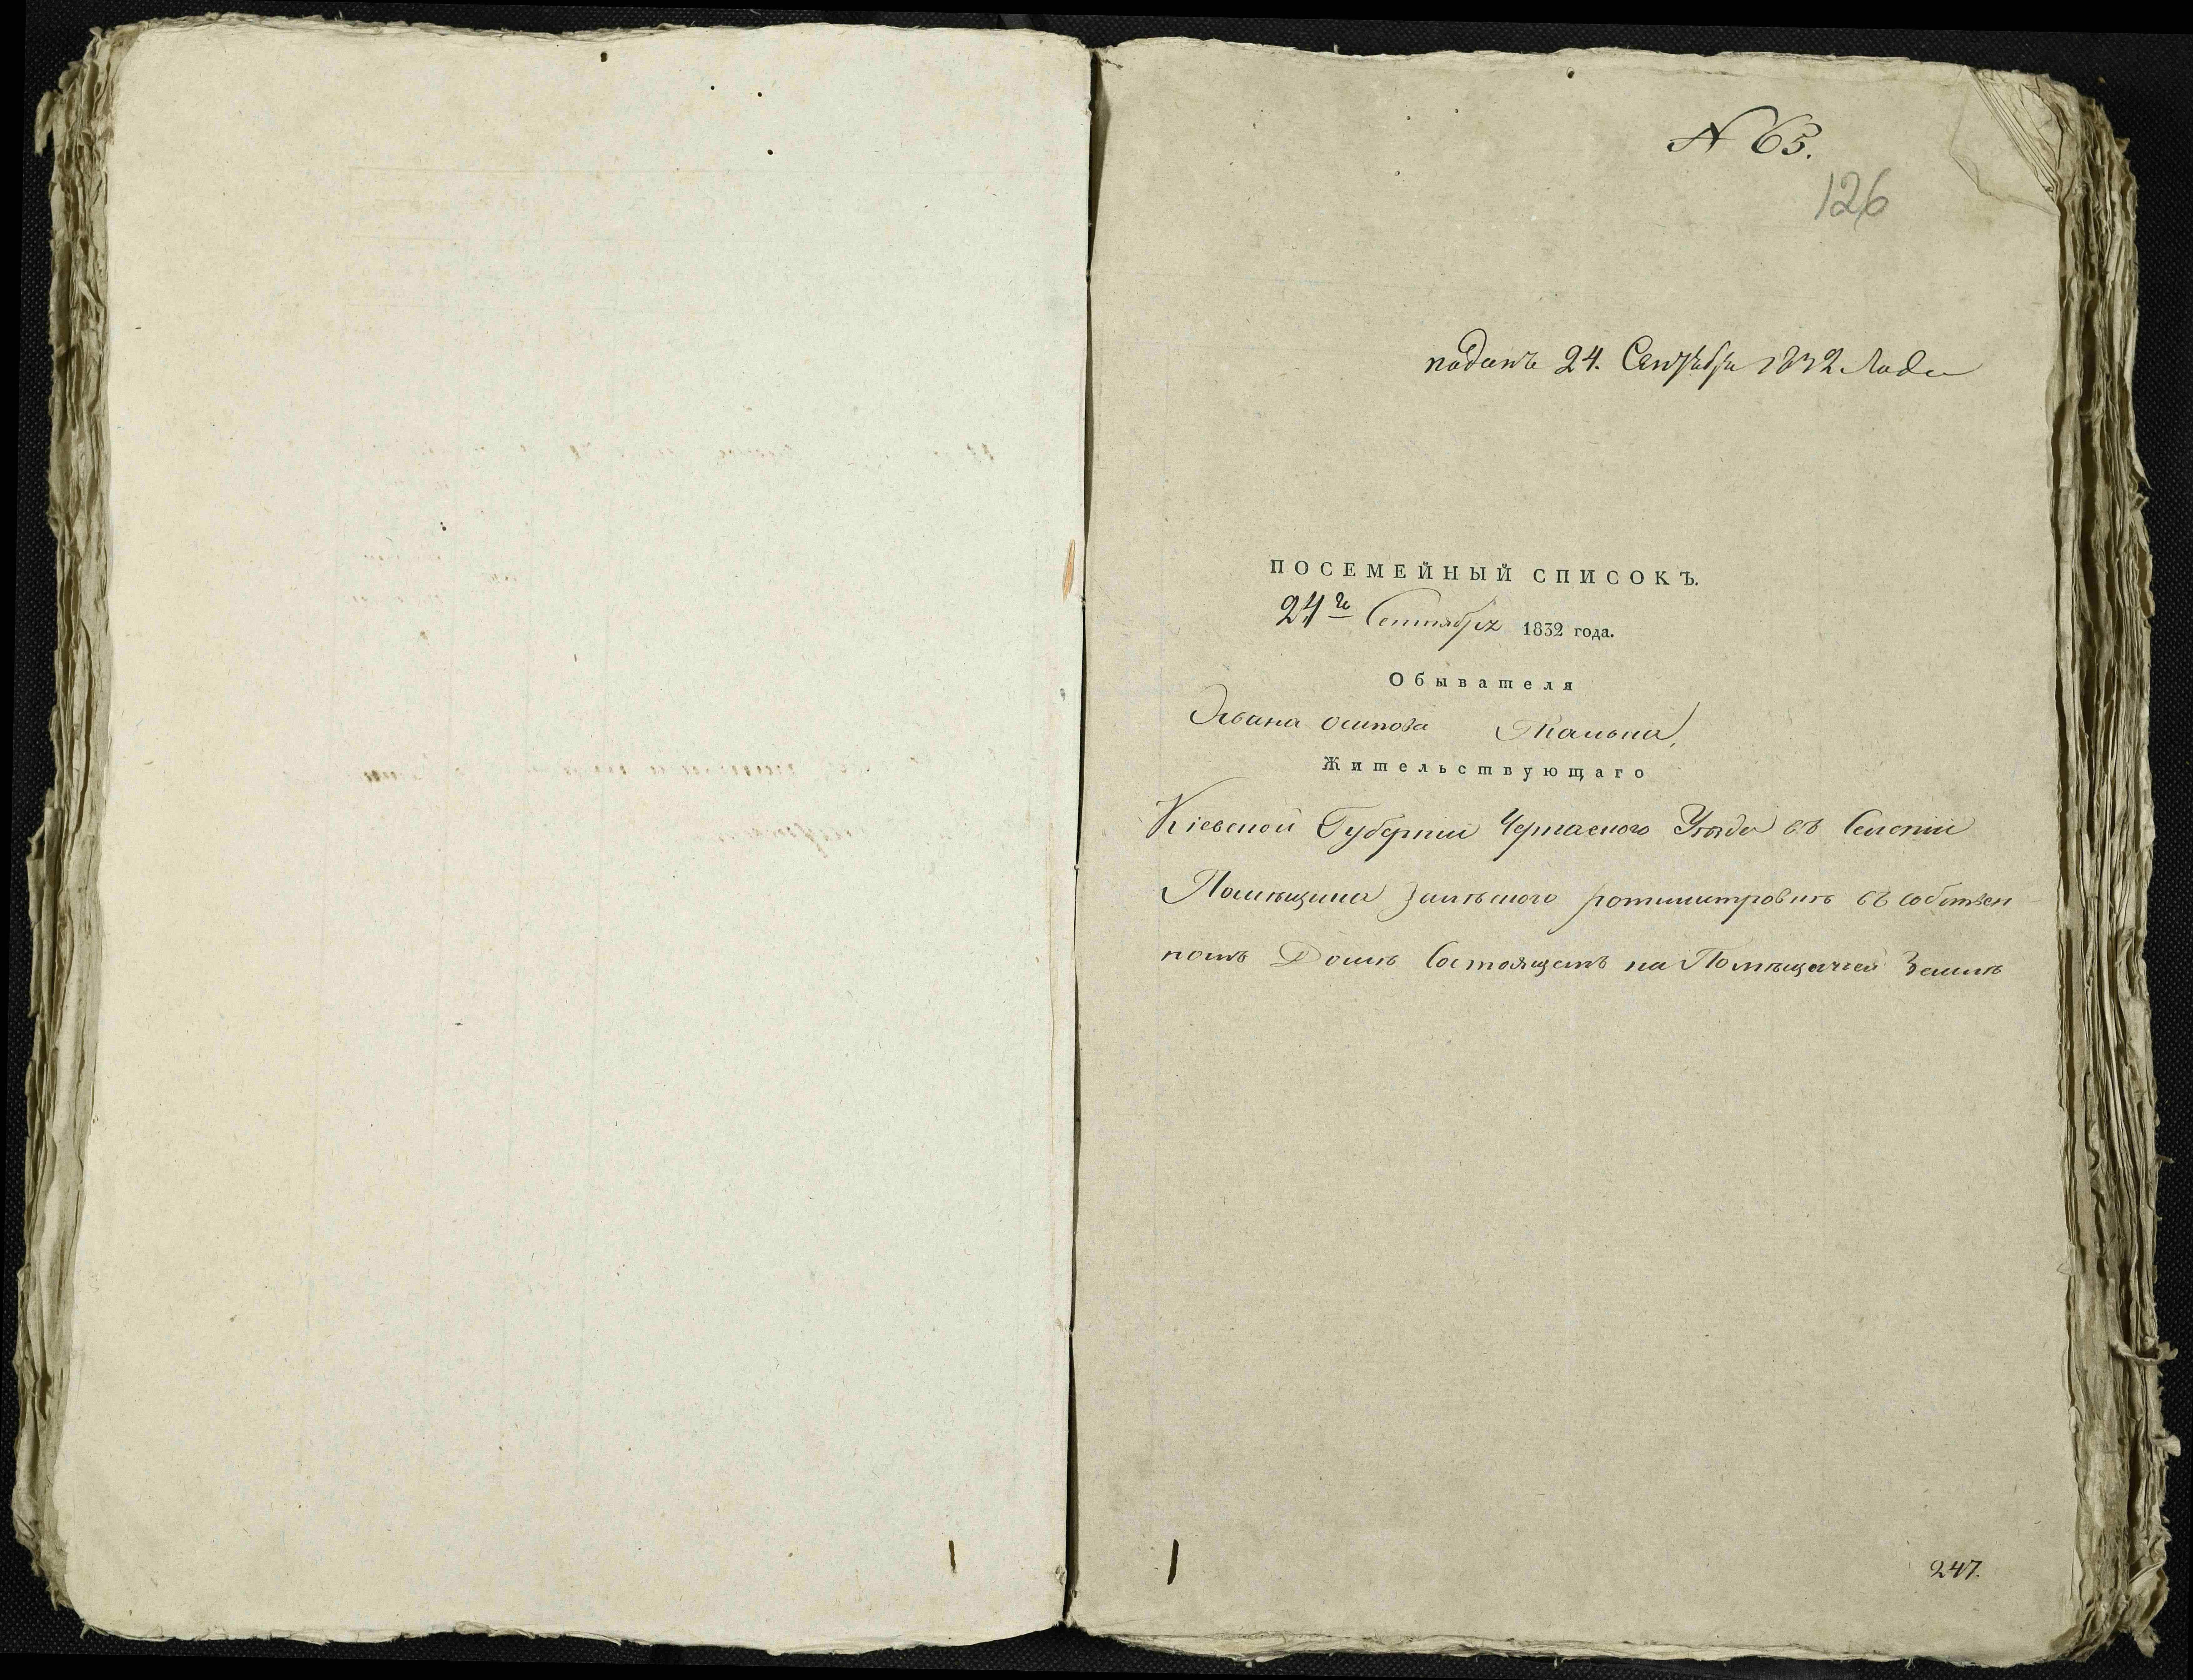 N 63.
126
поданъ 24. Сентября 1832 Года
ПОСЕМЕЙНЫЙ СПИСОКЪ.
24го Сентября 1832 года.
Обывателя
Ивана Осипова
Жительствующаго
Кіевской Губерніи Черкаского Уѣзда въ Селеніи
Помѣщика ротмистровкѣ въ собствен
номъ Домѣ Состоящемъ на Помѣщичьей Землѣ
247.